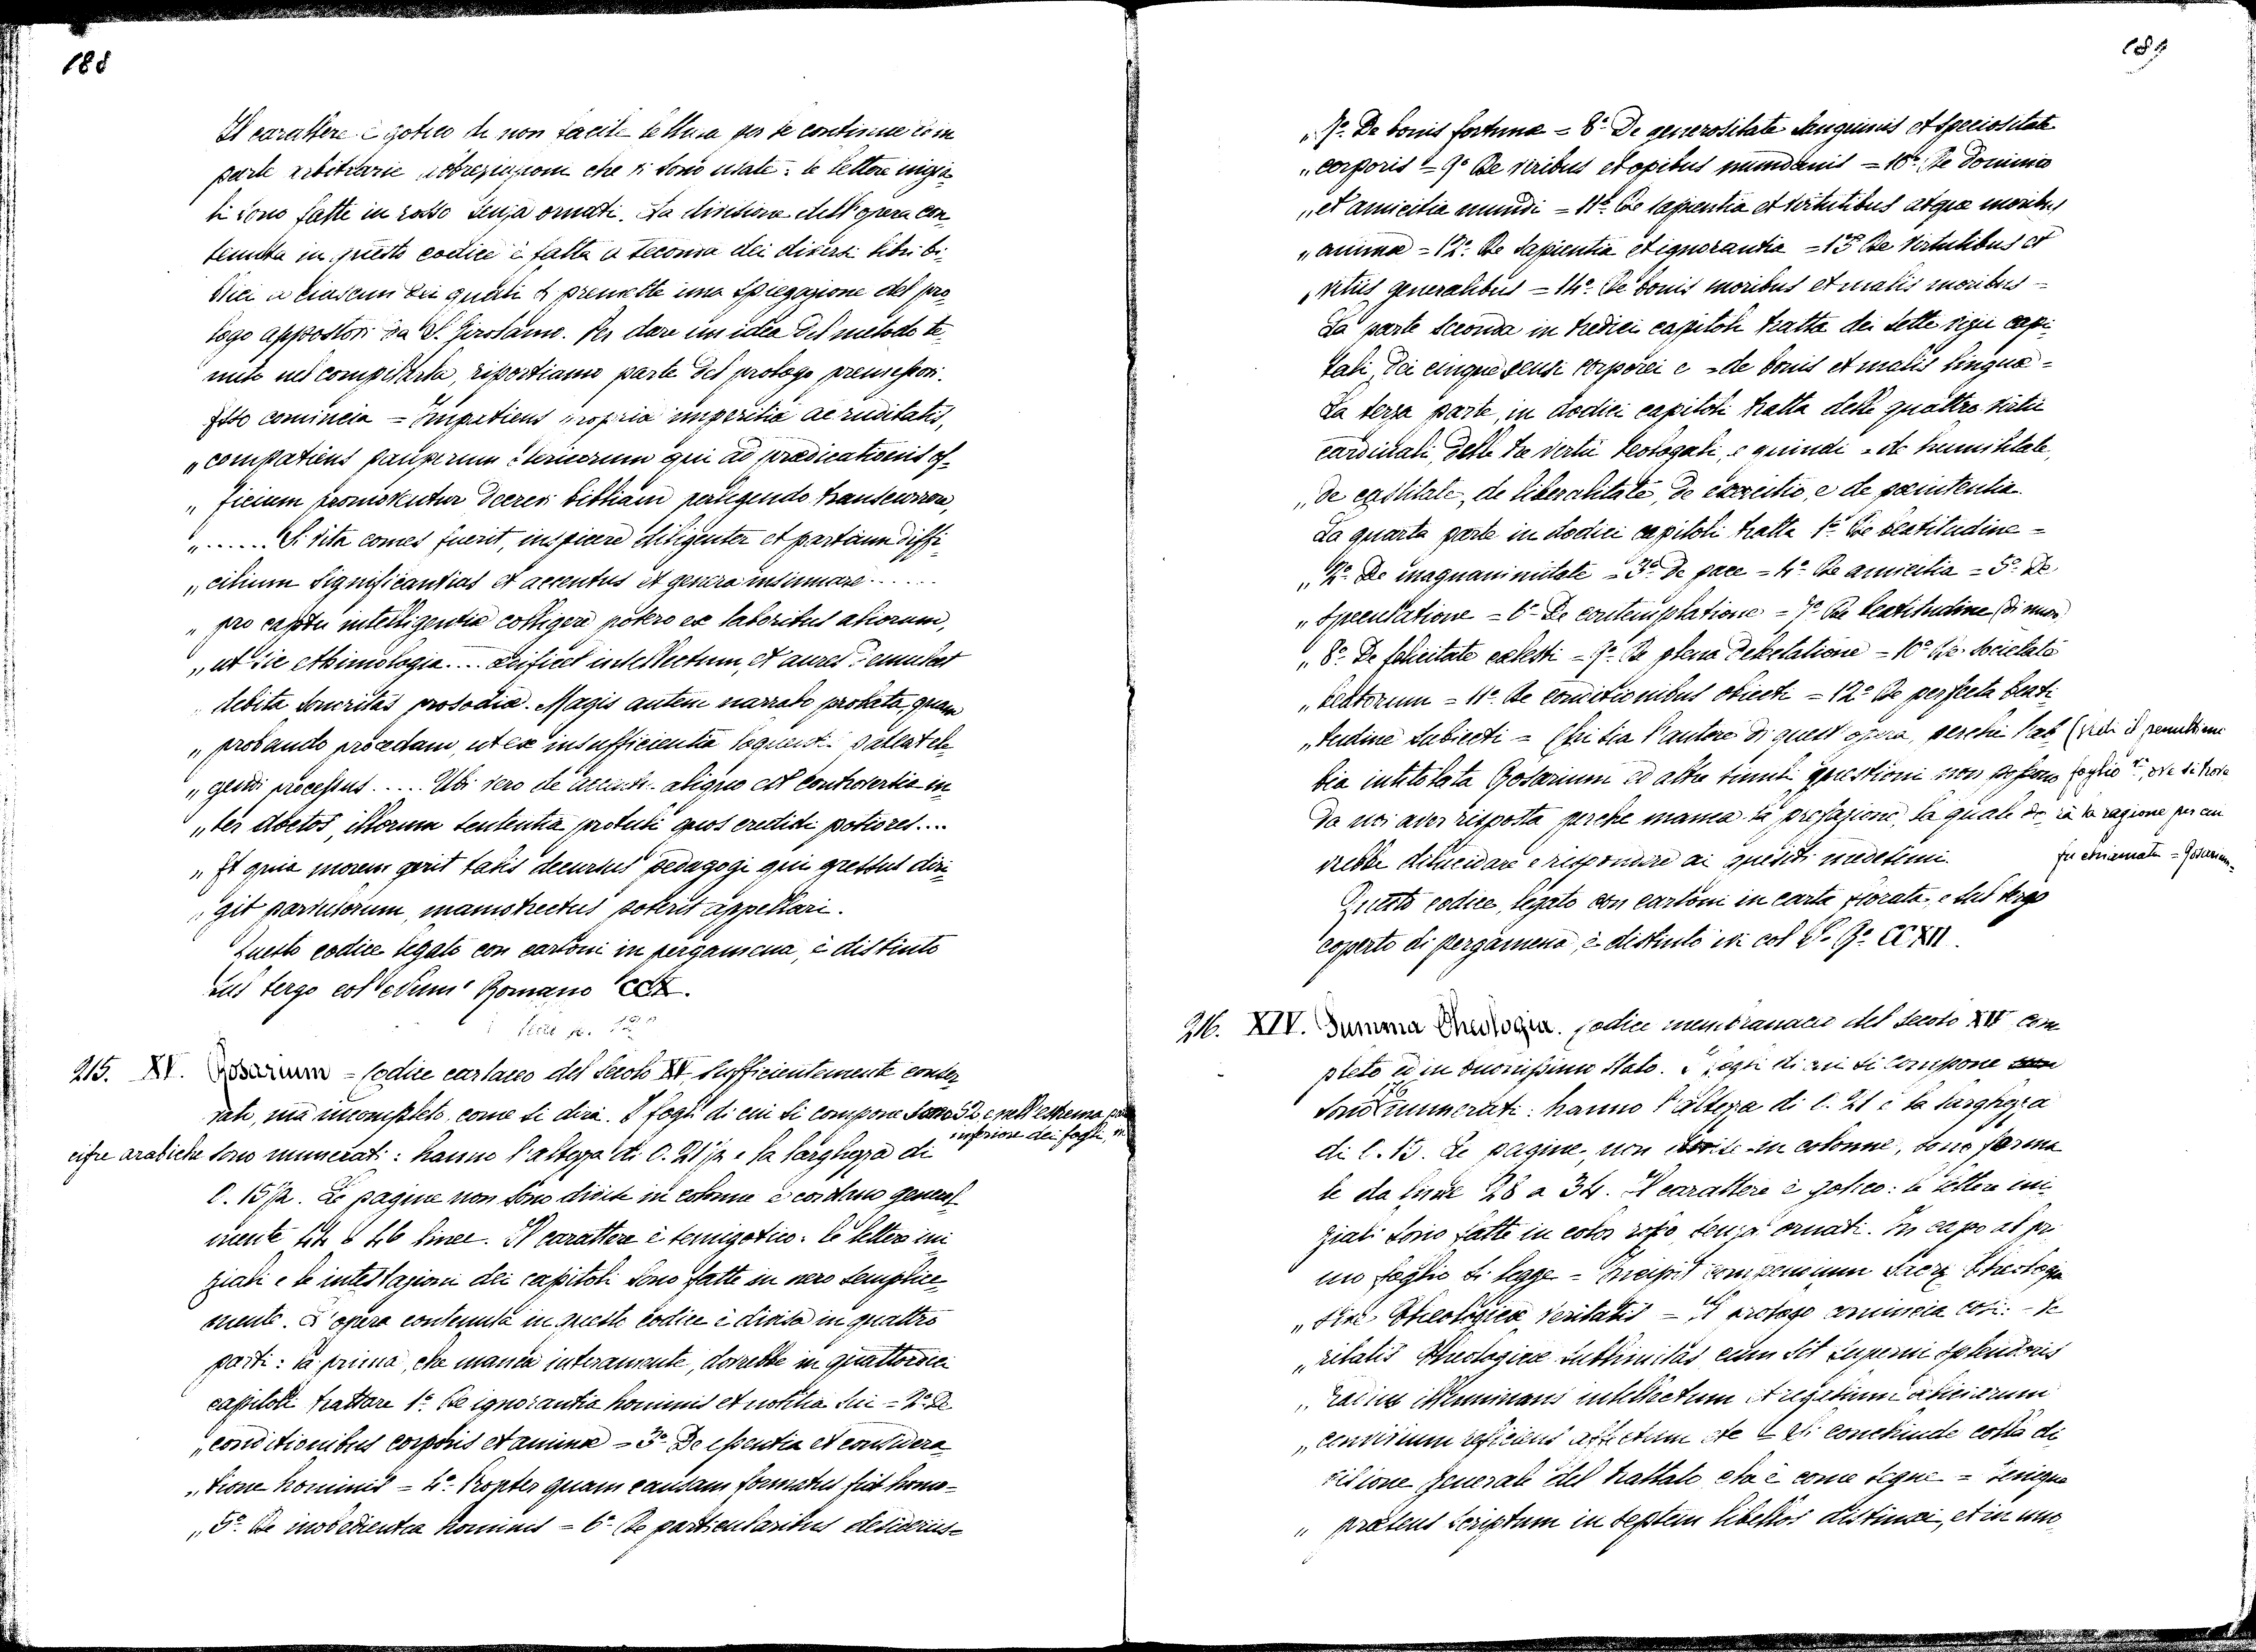 188
Il carattere è gotico di non facile lettura per le continue ed in
parte arbitrarie abbreviazioni che vi sono usate: le lettere inizia-
li sono fatte in rosso senza ornati. La divisione dell'opera con-
tenuta in questo codice è fatta a seconda dei diversi libri bi-
blici a ciascun dei quali si premette una spiegazione del pro-
logo appostovi da S. Girolamo. Per dare un idea del metodo te-
nuto nel compilarla, riportiamo parte del prologo premessovi.
Esso comincia = Impatiens propriæ imperitiæ ac ruditatis,
„ compatiens pauperum clericorum qui ad prædicationis of-
„ ficium promoventur decrevi bibliam perlegendo transcurrere,
„ ...... Si vita comes fuerit, inspicere diligenter et partium diffi-
„ cilium significantias et accentus et genera insinuare ......
„ pro captu intelligentiæ colligere potero ex laboribus aliorum,
„ ut sic ethimologia .... ædificet intellectum, et aures demulceat
„ debita sonoritas prosodiæ. Magis autem narrabo probata, quam
„ probando procedam, ut ex insufficientia loquendi pallat ele-
„ gendi processus ..... Ubi vero de accentu aliquo est controversia in-
„ ter doctos, illorum sententia protuli quos credidi potiores....
„ Et quia morem gerit talis decursus pedagogi qui gressus diri-
„ git parvulorum, mamotrectus poterit appellari.
Questo codice legato con cartoni in pergamena, è distinto
sul tergo col Num° Romano CCX.
215. XV. Rosarium = Codice cartaceo del Secolo XV sufficientemente conser-
vato, ma incompleto, come si dirà. I fogli di cui si compone sono 52, e nell'estrema parte
inferiore dei fogli, in
cifre arabiche sono numerati: hanno l'altezza di C. 21 1/2 e la larghezza di
C. 15 1/2. Le pagine non sono divise in colonne e contano general-
mente 44 o 46 linee. Il carattere è semigotico: le lettere ini-
ziali e le intestazioni dei capitoli sono fatte in nero semplice-
mente. L'opera contenuta in questo codice è divisa in quattro
parti: la prima, che manca interamente, dovrebbe in quattordici
capitoli trattare 1.° De ignorantia hominis et notitia sui = 2.° De
„ conditionibus corporis et animæ = 3.° De essentia et considera-
„ tione hominis = 4.° Propter quam causam formatus fuit homo =
„ 5.° De inobedientia hominis = 6.° De particularibus desideriis =
189
„ 7.° De bonis fortunæ = 8.° De generositate sanguinis et speciositate
„ corporis = 9.° De viribus et opibus mundanis = 10.° De dominio
„ et amicitia mundi = 11.° De sapientia et virtutibus atque moribus
„ animæ = 12.° De sapientia et ignorantia = 13.° De virtutibus et
„ vitiis generalibus = 14.° De bonis moribus et malis moribus =
La parte seconda in tredici capitoli tratta dei sette vizii capi-
tali, dei cinque sensi corporei e = de bonis et malis linguæ =
La terza parte, in dodici capitoli tratta delle quattro virtù
cardinali, delle tre virtù teologali, e quindi = de humilitate,
„ de castitate, de liberalitate, de exercitio, e de pœnitentia.
La quarta parte in dodici capitoli tratta 1.° De beatitudine =
„ 2.° De magnanimitate = 3.° De pace = 4.° De amicitia = 5.° De
„ speculatione = 6.° De contemplatione = 7.° De beatitudine
„ 8.° De felicitate cælesti = 9.° De plena delectatione = 10.° De societate
„ beatorum = 11.° De conditionibus obiecti = 12.° De perfecta beati-
„ tudine subiecti = Chi sia l'autore di quest'opera, perchè l'ab-
bia intitolata Rosarium ed altre simili questioni non possono
da noi aver risposta perchè manca la prefazione, la quale do-
vrebbe dilucidare e rispondere ai quesiti medesimi.
(vedi il penultimo
foglio, ove si trova
la ragione per cui
fu chiamata = Rosarium =
Questo codice, legato con cartoni in carta fiorata, e sul tergo
coperto di pergamena, è distinto ivi col N.° R.° CCXII.
216. XIV. Summa Theologiæ. Codice membranaceo del Secolo XIV com-
pleto ed in buonissimo stato. I fogli di cui si compone
sono 176 numerati: hanno l'altezza di C. 21 e la larghezza
di C. 15. Le pagine, non divise in colonne, sono forma-
te da linee 28 a 34. Il carattere è gotico: le lettere ini-
ziali sono fatte in color rosso, senza ornati. In capo al pri-
mo foglio si legge = Incipit compendium Sacræ Theologiæ
„ sive Theologicæ Veritatis = Il prologo comincia così: = Ve-
„ ritatis theologicæ sublimitas cum sit superni splendoris
„ radius illuminans intellectum et regalium deliciarum
„ convivium reficiens affectum etc = Si conchiude colla di-
visione generale del trattato che è come segue = Denique
„ præsens scriptum in septem libellos distinxi, et in uno